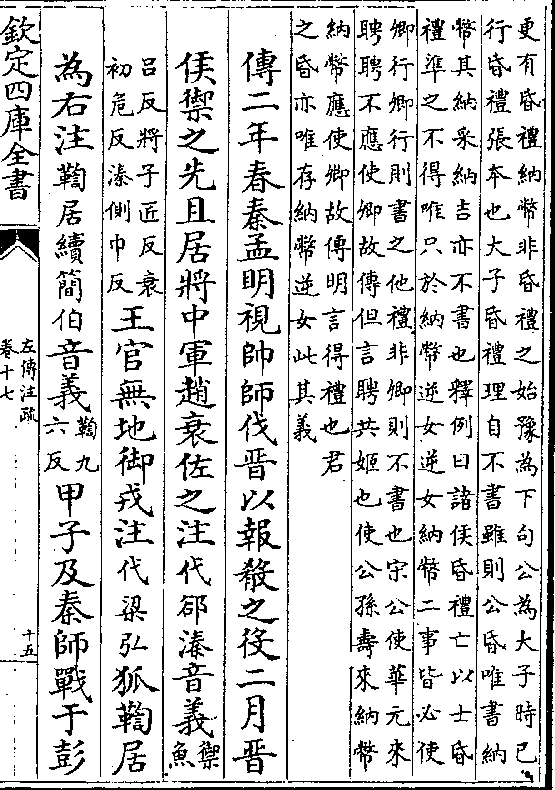 更有昏禮納幣非昏禮之始豫為下句公為大子時已
行昏禮張本也大子昏禮理自不書雖則公昏唯書納
幣其納采納吉亦不書也釋例曰諸侯昏禮亡以士昏
禮準之不得唯只於納幣逆女逆女納幣二事皆必使
卿行卿行則書之他禮非卿則不書也宋公使華元來
聘聘不應使卿故傳但言聘共姬也使公孫壽來納幣
納幣應使卿故傳明言得禮也君
之昏亦唯存納幣逆女此其義
傳二年春秦孟明視帥師伐晉以報殽之役二月晉
侯禦之先且居將中軍趙衰佐之注代郤溱音義禦魚
呂反將子匠反衰初危反溱側巾反王官無地御戎注代梁弘狐鞫居
為右注鞫居續簡伯音義鞫九六反甲子及秦師戰于彭
欽定四庫全書
左傳注疏
卷十七
十五